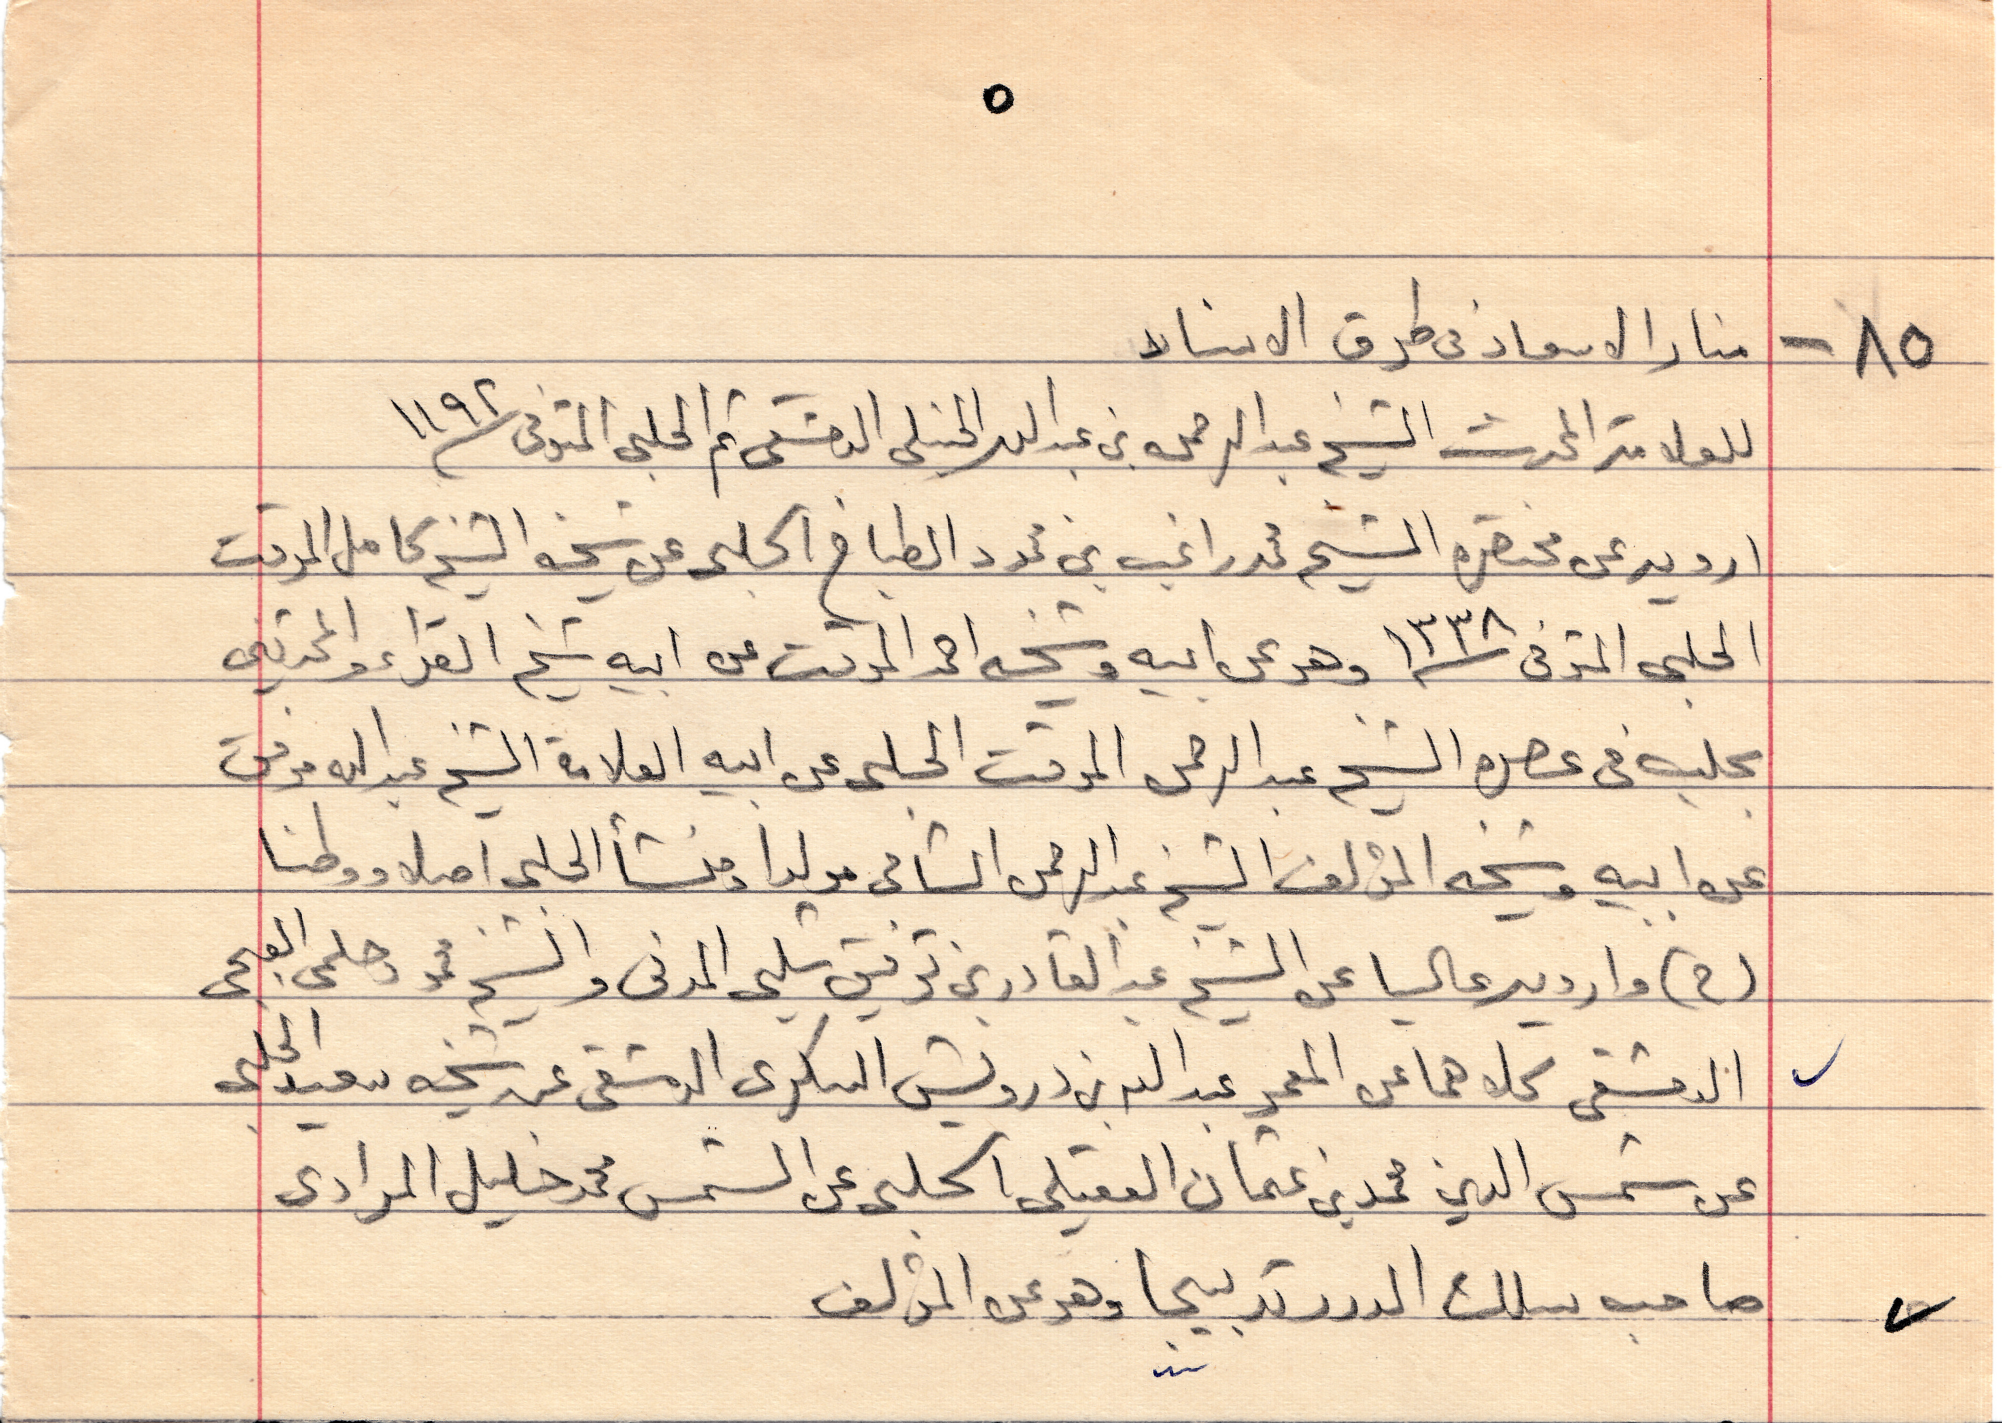 ٥
٨٥ - منار الاسعاد فى طرق الاسناد
للعلامة المحدث الشيخ عبد الرحمن بن عبد الله الحنبلى الدمشقى ثم الحلبى المتوفى ١١٩٢
ارويه عن مختصره الشيخ محمد راغب بن محمود الطباخ الحلبى عن شيخه الشيخ كامل الموقت
الحلبى المتوفى ١٣٣٨ وهو عن ابيه وشيخه احمد الموقت عن ابيه شيخ القراء والمحدثين
بحلب فى عصره الشيخ عبد الرحمن الموقت الحلبى عن ابيه العلامة الشيخ عبد الله موقت
عن ابيه وشيخه المؤلف الشيخ عبد الرحمن الشامى مولدا ومنشأ الحلبى اصلا ووطنا
(ح) وارويه عاليا عن الشيخ عبد القادر بن توفيق شلبى المدنى والشيخ محمود حلمى
الدمشقى كلاهما عن المعمر عبد الله بن درويش السكرى الدمشقى عن شيخه سعيد الحلبى
عن شمس الدين محمد بن عثمان العقيلى الحلبى عن الشمس محمد خليل المرادى
صاحب سلك الدرر تدبيجا وهو عن المؤلف